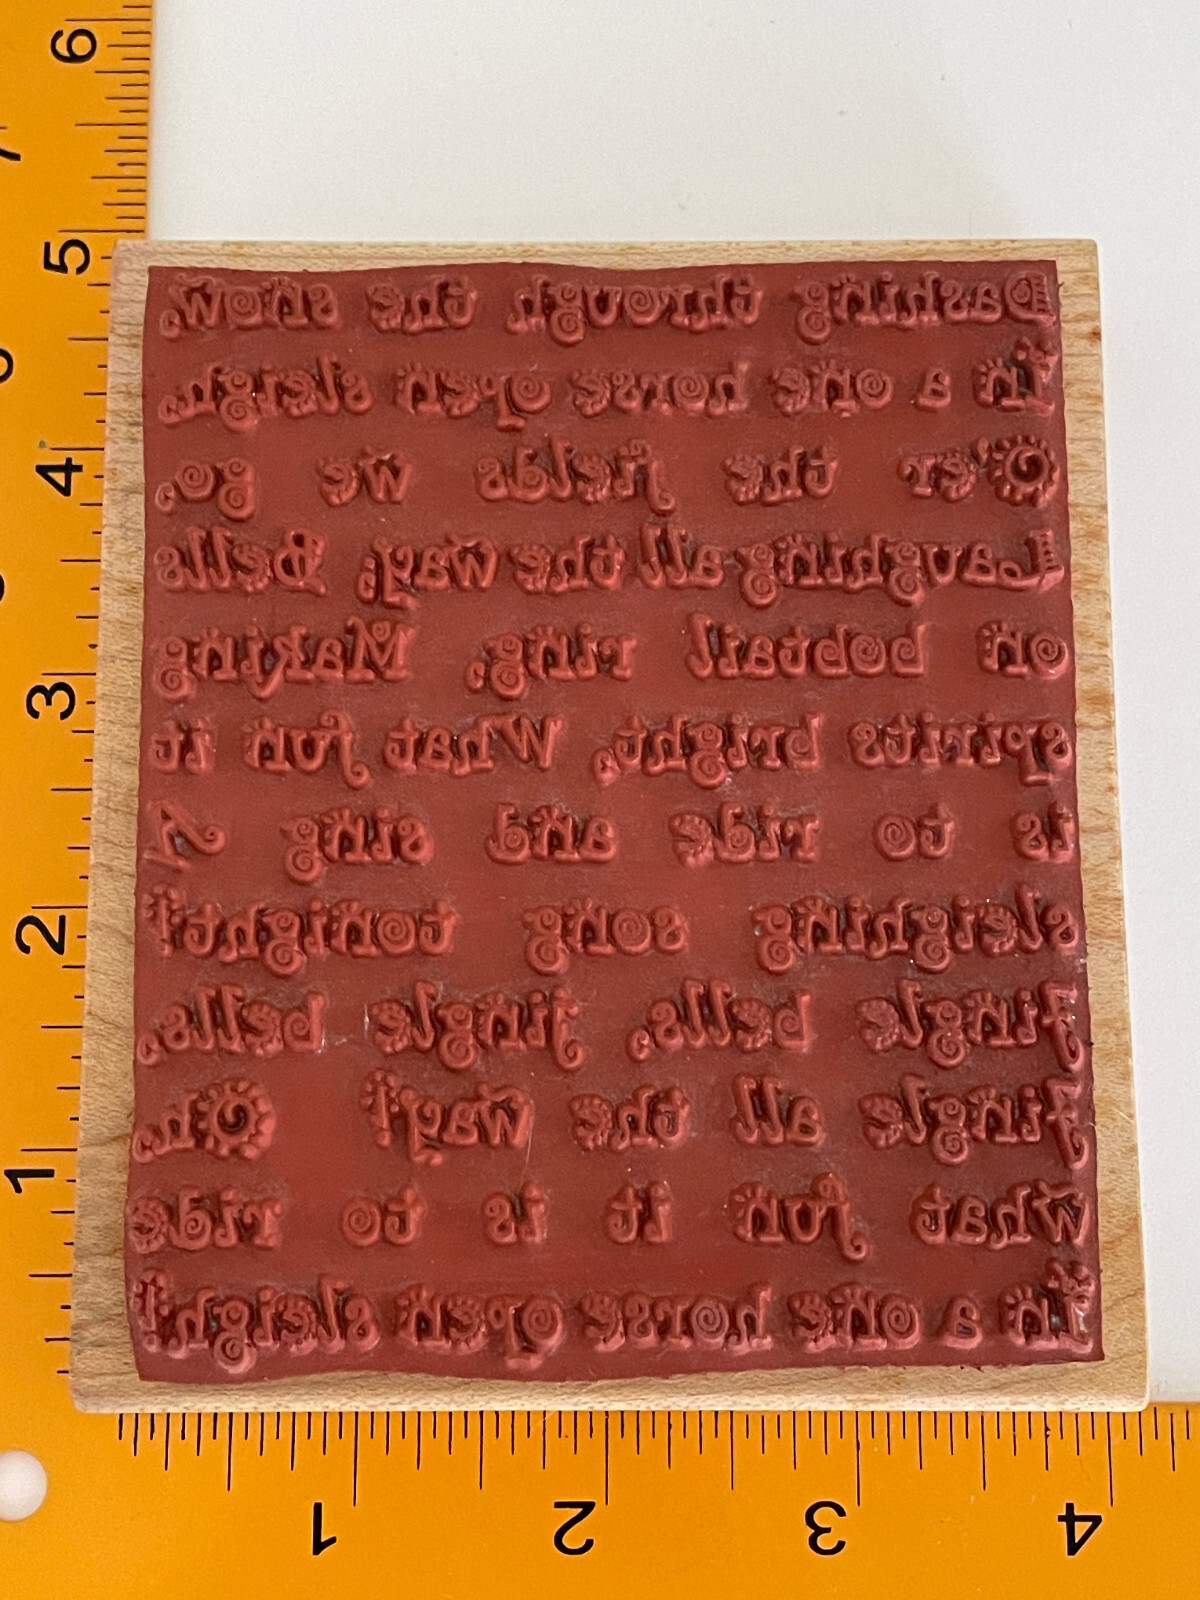 Dashing through the snow,
In a one horse open sleigh,
O'er the fields we go,
Laughing all the way; Bells
on bobtail ring, Making
spirits bright, What fun it
is to ride and sing A
sleighing song tonight!
Jingle bells, jingle bells,
Jingle all the way! Oh,
what fun it is to ride
In a one horse open sleigh!
6
5
4
3
2
1
7
1
2
3
4